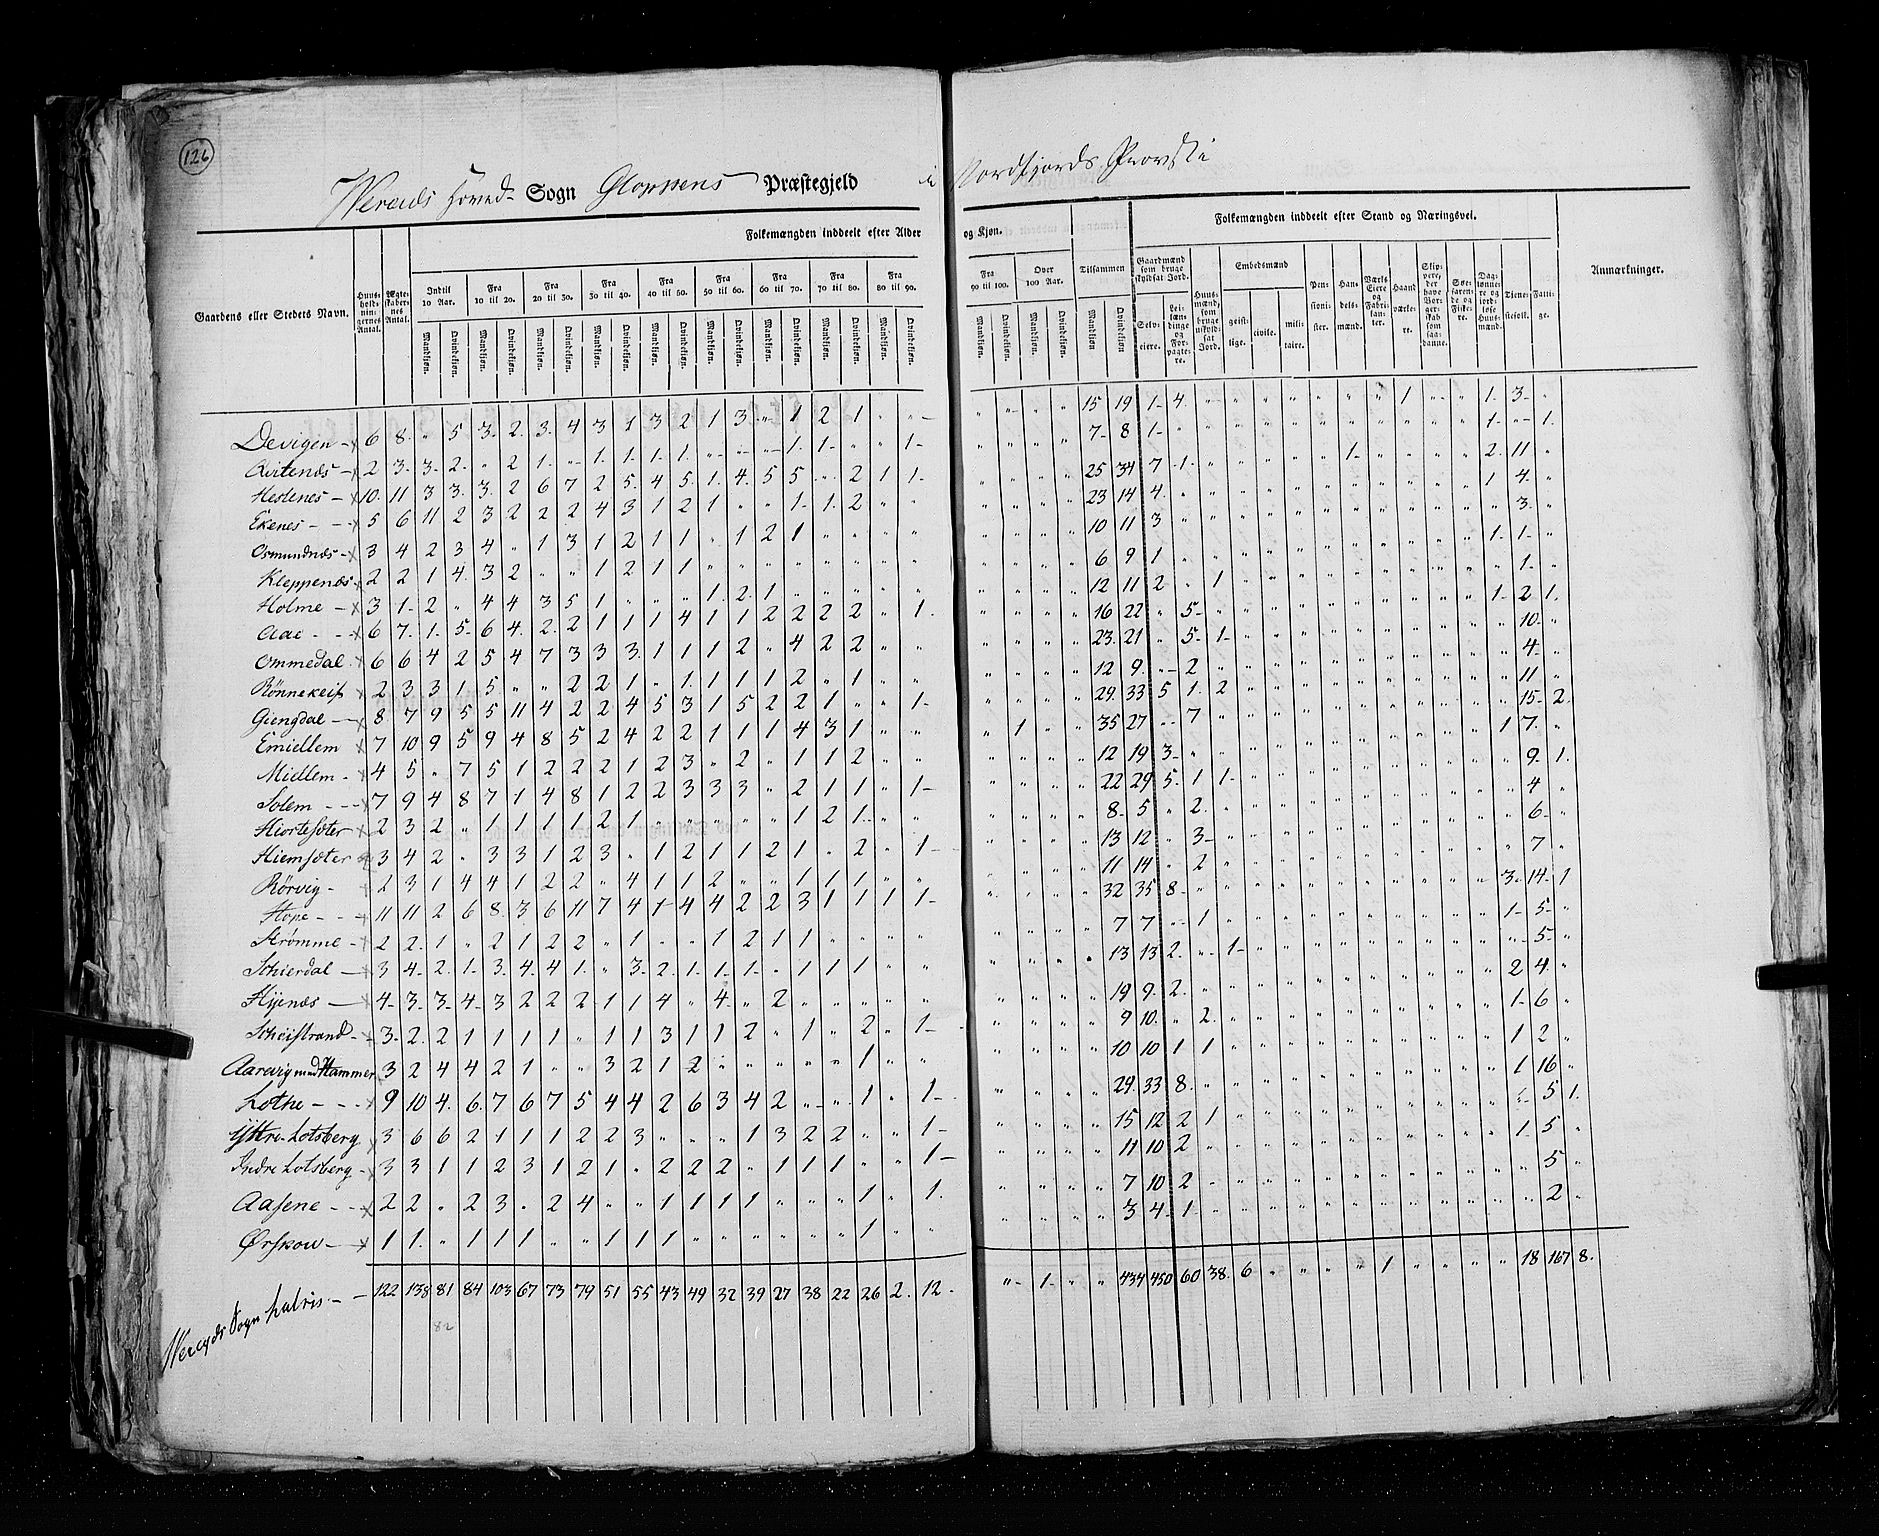 126
Wereids Hoved- Sogn Gloppens Præstegjeld i Nordfjords Provsti
Gaardens eller Stedets Navn. Huus-holdnin-gernes Antal. Ægte-skaber-nes Antal. Folkemængden inddeelt efter Alder og Kjøn. Tilsammen Folkemængden inddeelt efter Stand og Næringsvei. Anmærkninger.
Indtil 10 Aar. Fra 10 til 20. Fra 20 til 30. Fra 30 til 40. Fra 40 til 50. Fra 50 til 60. Fra 60 til 70. Fra 70 til 80. Fra 80 til 90. Fra 90 til 100. Over 100 Aar.
Mandkjøn. Qvindekjøn. Mandkjøn. Qvindekjøn. Mandkjøn. Qvindekjøn. Mandkjøn. Qvindekjøn. Mandkjøn. Qvindekjøn. Mandkjøn. Qvindekjøn. Mandkjøn. Qvindekjøn. Mandkjøn. Qvindekjøn. Mandkjøn. Qvindekjøn. Mandkjøn. Qvindekjøn. Mandkjøn. Qvindekjøn. Mandkjøn Qvindekjøn
Gaardmænd som bruge skyldsat Jord. Selv-eiere. Lei-læn-dinge og For-pagte-re. Huus-mænd, som bruge uskyld-sat Jord. Embedsmænd geist-lige. civile. mili-taire. Pen-sioni-ster. Han-dels-mænd. Værks-Eiere og Fabri-kanter. Haand-værke-re. Skip-pere, der have Bor-ger-skab som saa-danne. Søe-farende og Fiskere. Dag-lønnere og jord-løse Huus-mænd. Tjene-stefolk. Fatti-ge.
Devigen 6 8 " 5 3 2 3 4 3 1 3 2 1 3 " 1 2 1 " " " " " " 15 19 1 4 " " " " " " " 1 " " 1 3 "
Qvitenæs 2 3 3 2 " 2 1 " 1 1 1 1 " " " 1 1 " " 1 " " " " 7 8 1 " " " " " " " " " " " 1 " 1
Hestenes 10 11 3 3 3 2 6 7 2 5 4 5 1 4 5 5 " 2 1 1 " " " " 25 34 7 1 " " " " " 1 " " " " 2 11 "
Ekenes 5 6 11 2 3 2 2 2 4 3 1 2 1 " " 1 1 2 " " " " " " 23 14 4 " " " " " " " " " " " 1 4 "
Osmundnæs 3 4 2 3 4 " 1 3 1 2 1 1 " 1 2 1 " " " " " " " " 10 11 3 " " " " " " " " " " " " 3 "
Kleppenæs 2 2 1 4 3 2 " " 1 2 1 1 " " " " " " " " " " " " 6 9 1 " " " " " " " " " " " 1 1 "
Holme 3 1 2 " 4 4 3 5 1 " " " 1 2 1 " " " " " " " " " 12 11 2 " 1 " " " " " " " " " " 1 "
Aae 6 7 1 5 6 4 2 2 1 1 1 4 1 1 2 2 2 2 " 1 " " " " 16 22 " 5 " " " " " " " " " " 1 2 1
Ommedal 6 6 4 2 5 4 7 3 3 3 1 1 1 2 " 4 2 2 " " " " " " 23 21 " 5 1 " " " " " " " " " " 10 "
Rönnekleif 2 3 3 1 5 " " 2 2 1 " 1 1 1 1 2 " 1 " " " " " " 12 9 " 2 " " " " " " " " " " " 4 "
Giengdal 8 7 9 5 5 11 4 2 2 4 5 3 1 5 2 2 1 " " 1 " " " " 29 33 5 1 2 " " " " " " " " " " 11 "
Emiellem 7 10 9 5 9 4 8 5 2 4 2 2 1 1 1 4 3 1 " " " 1 " " 35 27 " 7 " " " " " " " " " " " 15 2
Miellem 4 5 " 7 5 1 2 2 2 1 2 3 " 2 " 1 1 2 " " " " " " 12 19 3 " " " " " " " " " " " 1 7 "
Solem 7 9 4 8 7 1 4 8 1 2 2 3 3 3 " 2 1 1 " 1 " " " " 22 29 5 1 1 " " " " " " " " " " 9 1
Hiortesæter 2 3 2 " 1 1 1 1 2 1 " " " " " 1 2 1 " " " " " " 8 5 " 2 " " " " " " " " " " " 4 "
Hiemsæter 3 4 2 " 3 3 1 2 3 " 1 2 1 1 2 1 " 2 " 1 " " " " 13 12 " 3 " " " " " " " " " " " 6 "
Rörvig 2 3 1 4 4 1 2 2 " 4 1 1 2 " " 1 1 1 " " " " " " 11 14 " 2 " " " " " " " " " " " 7 "
Hope 11 11 2 6 8 3 6 11 7 4 1 4 4 2 2 3 1 1 1 1 " " " " 32 35 8 " " " " " " " " " " " 3 14 1
Strömme 2 2 1 " 2 1 2 2 " 1 " " 1 2 1 1 " " " " " " " " 7 7 " 1 " " " " " " " " " " 1 5 "
Schierdal 3 4 2 1 3 4 4 1 " 3 2 1 1 1 " 1 1 1 " " " " " " 13 13 2 " 1 " " " " " " " " " " 5 "
Hyenæs 4 3 3 4 3 2 2 2 1 1 4 " 4 " 2 " " " " " " " " " 19 9 2 " " " " " " " " " " " 2 4 "
Scheistrand 3 2 2 1 1 1 1 " 1 1 3 1 1 2 " 1 " 2 " 1 " " " " 9 10 " 2 " " " " " " " " " " 1 6 "
Aarevig med Hammer 3 2 4 4 2 1 " " 3 2 1 2 " " " " " 1 " " " " " " 10 10 1 1 " " " " " " " " " " 1 2 "
Lothe 9 10 4 6 7 6 7 5 4 4 2 6 3 4 2 " " 1 " 1 " " " " 29 33 8 " " " " " " " " " " " 1 16 "
Yttre Lotsberg 3 6 6 2 1 1 1 2 2 3 " " " 1 3 2 2 " " 1 " " " " 15 12 2 1 " " " " " " " " " " " 5 1
Indre Lotsberg 3 3 1 1 2 3 1 2 1 " 2 2 2 " 1 1 1 " " 1 " " " " 11 10 2 " " " " " " " " " " " 1 5 "
Aasene 2 2 " 2 3 " 2 4 " " 1 1 1 1 " " " 1 " 1 " " " " 7 10 2 " " " " " " " " " " " " 5 "
Ørskow 1 1 " 1 1 1 " " 1 1 1 " " " " " " 1 " " " " " " 3 4 1 " " " " " " " " " " " " 2 "
Wereids Sogn 122 138 81 84 103 67 73 79 51 55 43 49 32 39 27 38 22 26 2 12 " 1 " " 434 450 60 38 6 " " " " " 1 " " " " 18 167 8
82